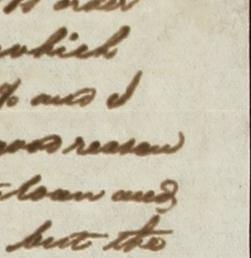 order
which
% and I
good reason
loan and
but the